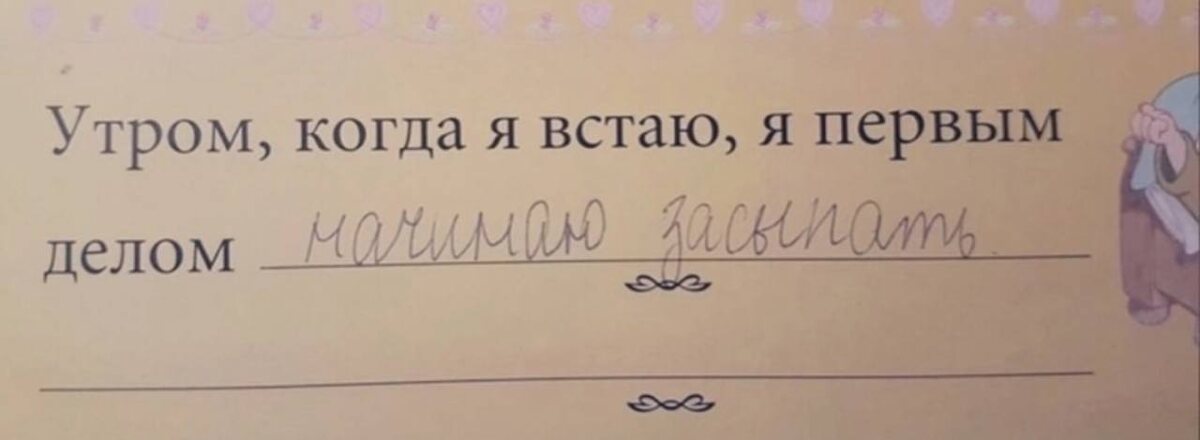 Утром, когда я встаю, я первым
делом начинаю засыпать.